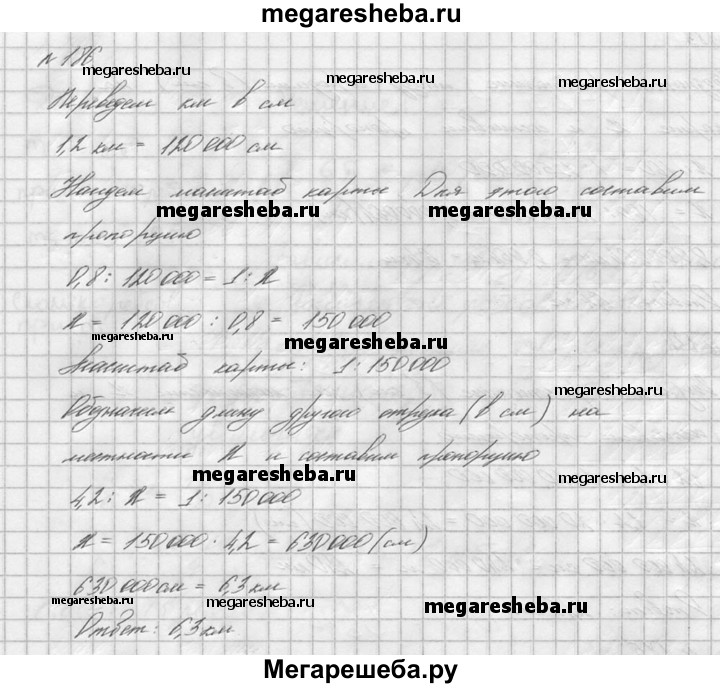 megaresheba.ru
№ 186
megaresheba.ru
megaresheba.ru
megaresheba.ru
Переведем км в см
1,2 км = 120 000 см
Найдем масштаб карты Для этого составим
megaresheba.ru
megaresheba.ru
пропорцию
0,8 : 120 000 = 1 : x
x = 120 000 : 0,8 = 150 000
megaresheba.ru
megaresheba.ru
Масштаб карты: 1 : 150 000
megaresheba.ru
Обозначим длину другого отрезка (в см) на
местности x и составим пропорцию
megaresheba.ru
megaresheba.ru
4,2 : x = 1 : 150 000
x = 150 000 · 4,2 = 630 000 (см)
630 000 см = 6,3 км
megaresheba.ru
megaresheba.ru
megaresheba.ru
Ответ: 6,3 км
Мегарешеба.ру